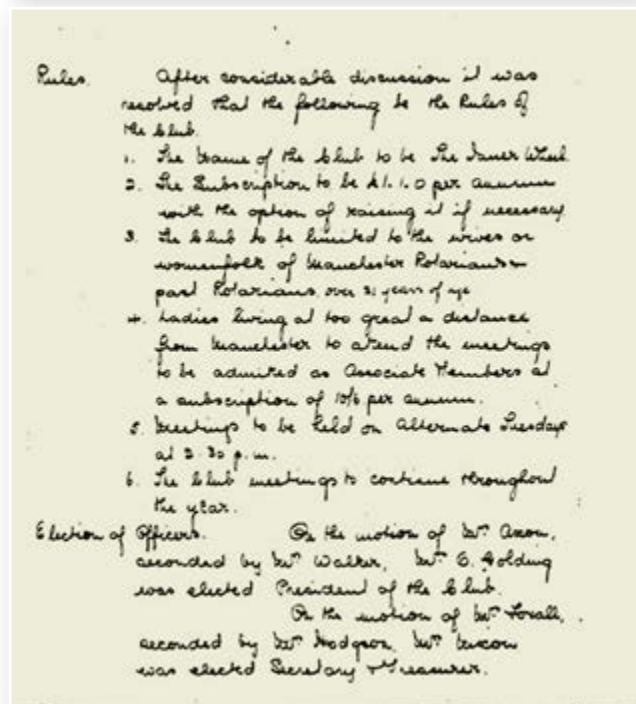 Rules. After considerable discussion it was
resolved that the following be the Rules of
the Club.
1. The Name of the Club to be The Inner Wheel
2. The Subscription to be £1.1.0 per annum
with the option of raising it if necessary
3. The Club to be limited to the wives or
womenfolk of Manchester Rotarians or
past Rotarians, over 21 years of age
4. Ladies living at too great a distance
from Manchester to attend the meetings
to be admitted as Associate Members at
a subscription of 10/6 per annum.
5. Meetings to be held on Alternate Tuesdays
at 2.30 p.m.
6. The Club meetings to continue throughout
the year.
Election of Officers. On the motion of Mrs
seconded by Mrs Walker, Mrs Golding
was elected President of the Club.
On the motion of Mrs
seconded by Mrs Hodgson, Mrs Nixon
was elected Secretary & Treasurer.